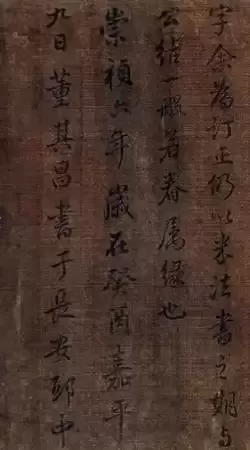 字余為訂正仍以米法書之期与
公结一般若眷属緣也
崇禎六年歲在癸酉嘉平
九日董其昌書于長安邸中